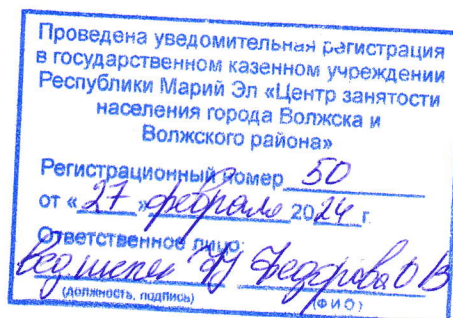 Проведена уведомительная регистрация
в государственном казенном учреждении
Республики Марий Эл «Центр занятости
населения города Волжска и
Волжского района»
Регистрационный номер 50
от «27» февраля 2024 г.
Ответственное лицо:
вед инспек Федорова О В
(должность, подпись) (Ф И О)